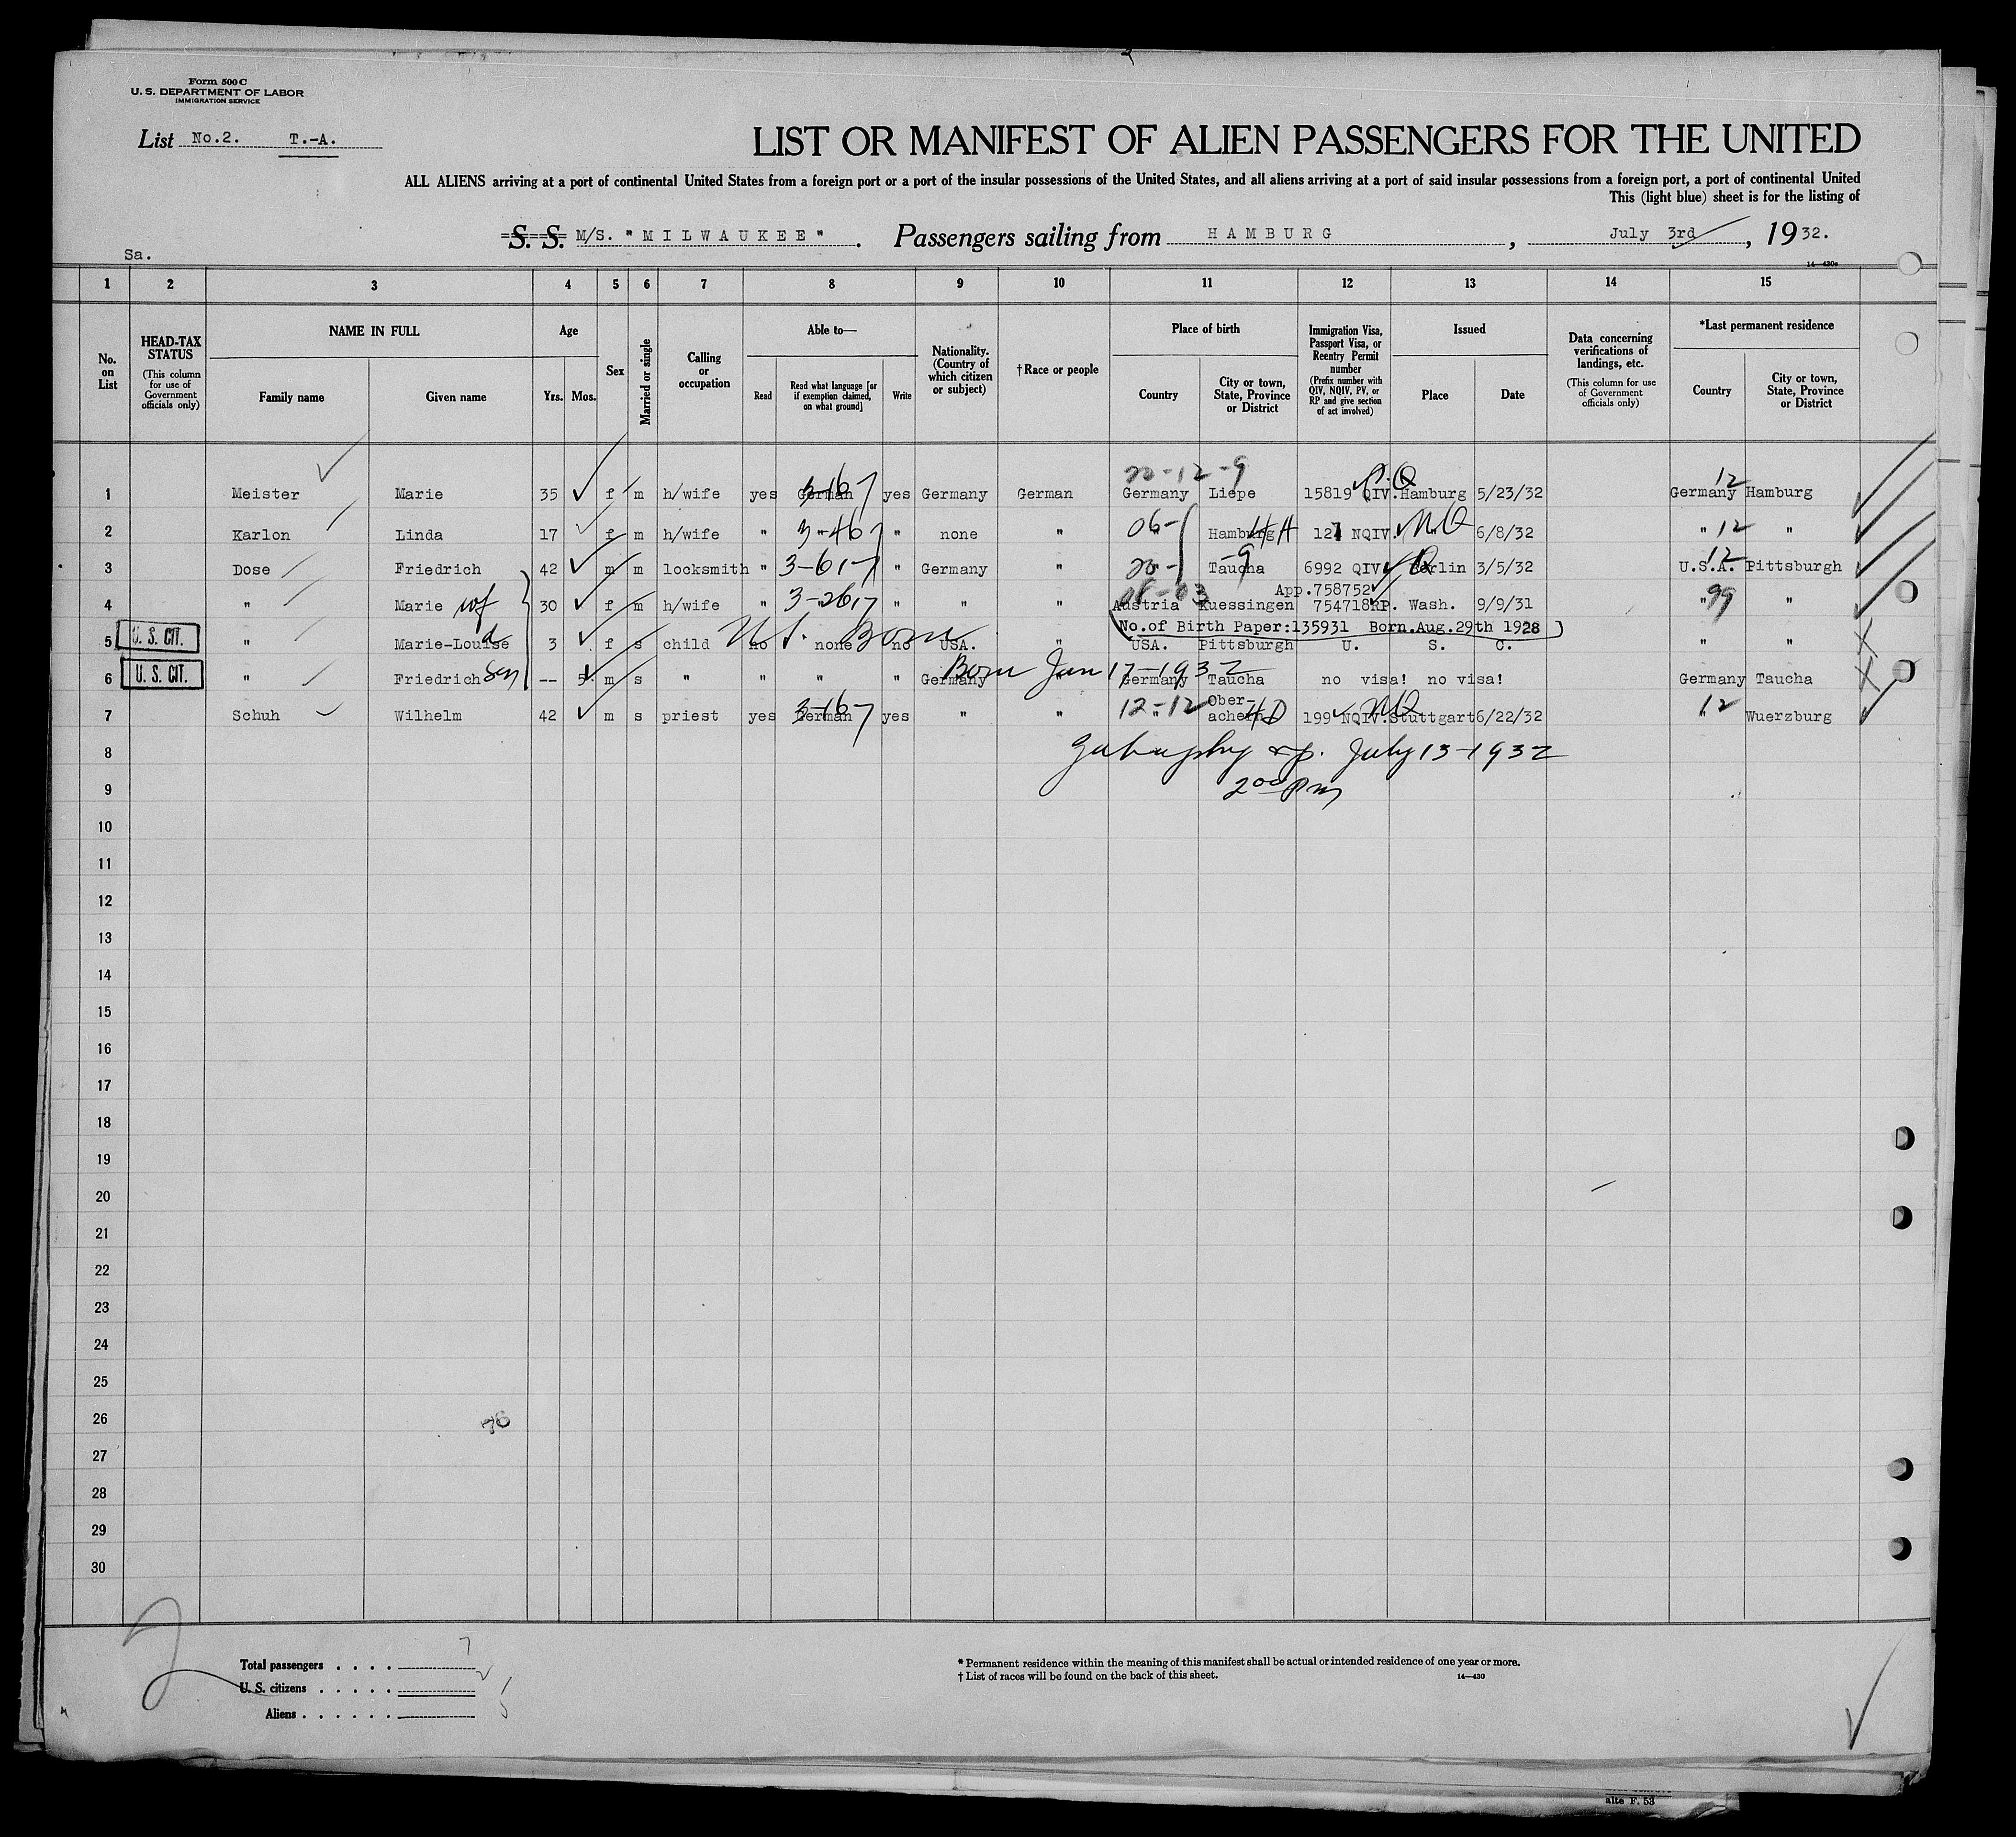 Form 500 C
U. S. DEPARTMENT OF LABOR
IMMIGRATION SERVICE
List No.2. T.-A.
LIST OR MANIFEST OF ALIEN PASSENGERS FOR THE UNITED
ALL ALIENS arriving at a port of continental United States from a foreign port or a port of the insular possessions of the United States, and all aliens arriving at a port of said insular possessions from a foreign port, a port of continental United
This (light blue) sheet is for the listing of
S. S. M/S. "MILWAUKEE". Passengers sailing from HAMBURG, July 3rd, 1932.
Sa.
14—430a
1 2 3 4 5 6 7 8 9 10 11 12 13 14 15
No. on List
HEAD-TAX STATUS
(This column for use of Government officials only)
NAME IN FULL
Family name Given name
Age
Yrs. Mos.
Sex
Married or single
Calling or occupation
Able to—
Read
Read what language [or if exemption claimed, on what ground]
Write
Nationality. (Country of which citizen or subject)
† Race or people
Place of birth
Country
City or town, State, Province or District
Immigration Visa, Passport Visa, or Reentry Permit number
(Prefix number with QIV, NQIV, PV, or RP and give section of act involved)
Issued
Place Date
Data concerning verifications of landings, etc.
(This column for use of Government officials only)
*Last permanent residence
Country
City or town, State, Province or District
20-12-9
1 Meister Marie 35 f m h/wife yes German 3-167 yes Germany German Germany Liepe 15819 QIV. Hamburg 5/23/32 Germany 12 Hamburg
2 Karlon Linda 17 f m h/wife " 3-467 " none " 06- Hamburg NQIV. NQ 6/8/32 " 12 "
3 Dose Friedrich 42 m m locksmith " 3-617 " Germany " 20- Taucha -9 6992 QIV Berlin 3/5/32 U.S.A. 12 Pittsburgh
App.758752
4 " Marie wf 30 f m h/wife " 3-2617 " " " Austria Kuessingen 754718RP. Wash. 9/9/31 " 99 "
No.of Birth Paper:135931 Born.Aug.29th 1928
U. S. CIT.
5 " Marie-Louise d 3 f s child no none no U.S. Born USA. " USA. Pittsburgh U. S. C. " "
U. S. CIT.
6 " Friedrich son -- 5 m s " " " " Germany Born Jan 17-1932 Germany Taucha no visa! no visa! Germany Taucha
7 Schuh Wilhelm 42 m s priest yes German 3-167 yes " " 12-12 Ober-achern 199 NQIV. NQ Stuttgart 6/22/32 " 12 Wuerzburg
8 July 13-1932
9 2 00 PM
10
11
12
13
14
15
16
17
18
19
20
21
22
23
24
25
26 76
27
28
29
30
2
Total passengers . . . . 7
U. S. citizens . . . . . 2
Aliens . . . . . . 5
* Permanent residence within the meaning of this manifest shall be actual or intended residence of one year or more.
† List of races will be found on the back of this sheet. 14—430
alte F. 53